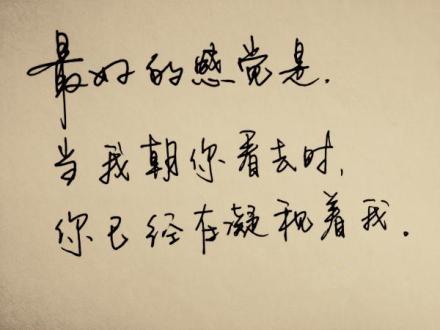 最好的感觉是.
当我朝你看去时,
你已经在凝视着我.